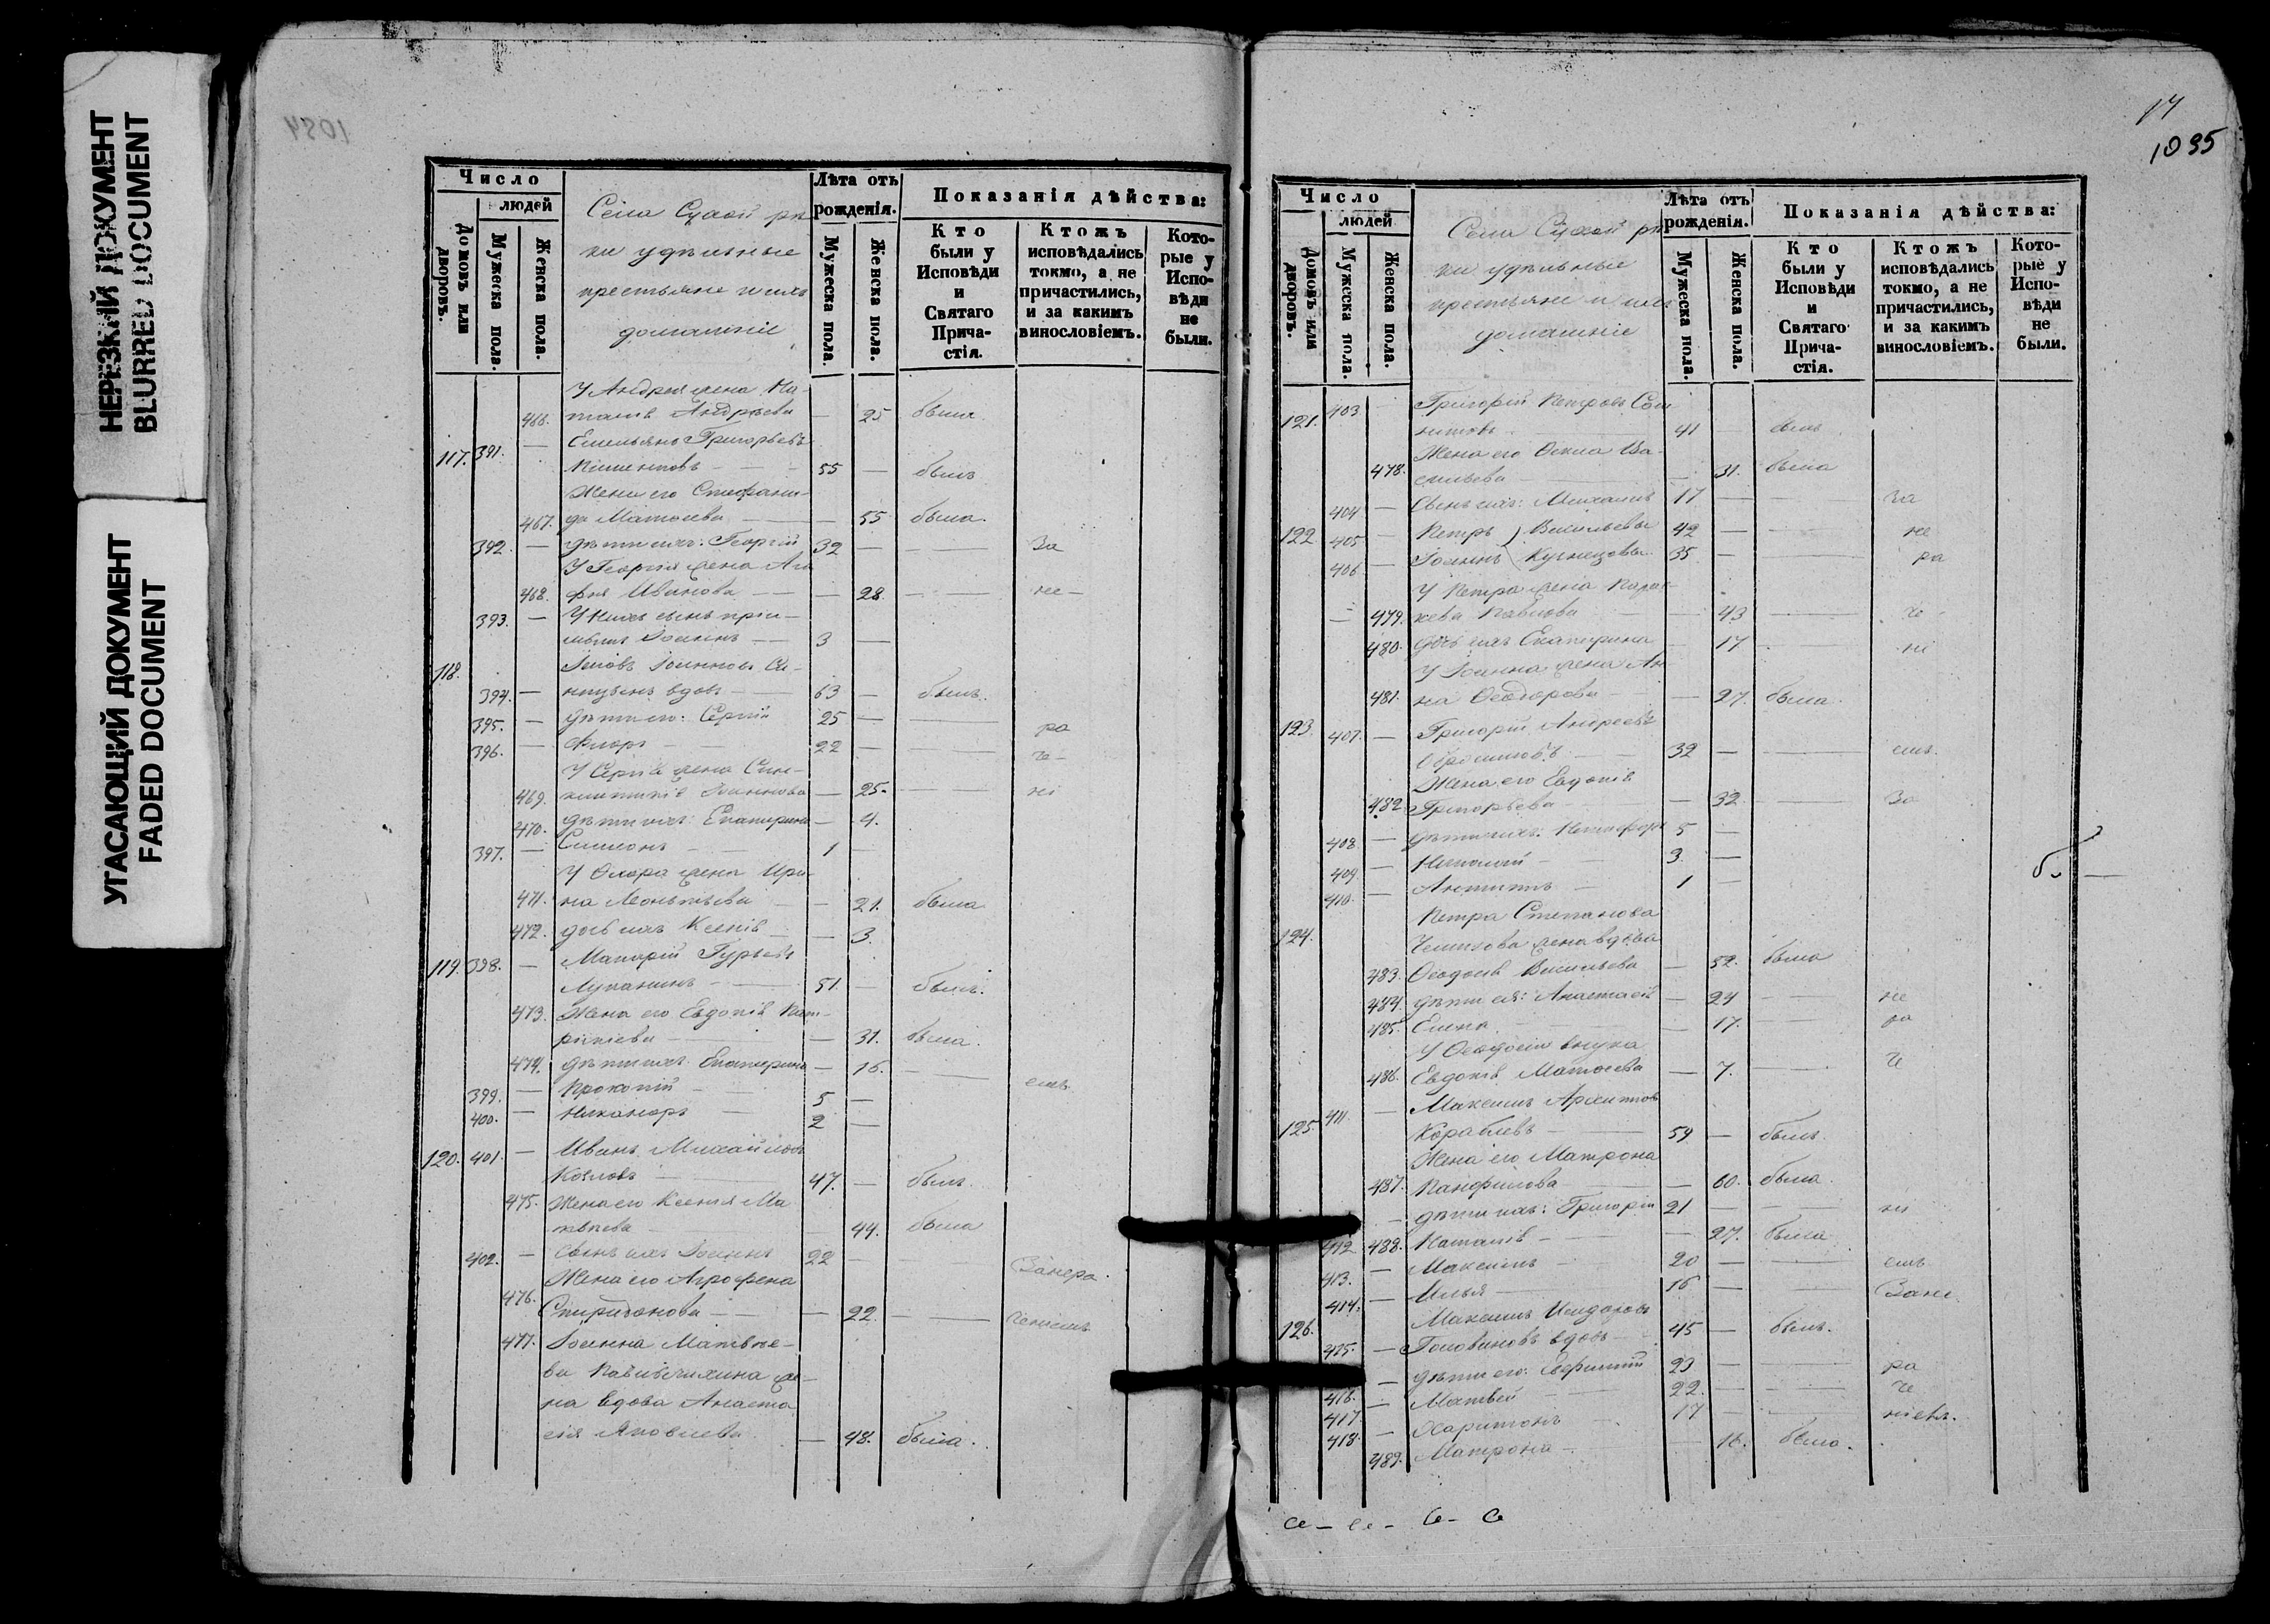 НЕРЕЗКИЙ ДОКУМЕНТ
BLURRED DOCUMENT
УГАСАЮЩИЙ ДОКУМЕНТ
FADED DOCUMENT
Число
людей
Домовъ или дворовъ.
Мужеска пола.
Женска пола.
Села Сухой рѣч
ки удѣльные
крестьяне и ихъ
домашніе
Лѣта отъ рожденія.
Мужеска пола.
Женска пола.
Показанія дѣйства:
Кто были у Исповѣди и Святаго Прича- стія.
Ктожъ исповѣдались токмо, а не причастились, и за какимъ винословіемъ.
Кото- рые у Испо- вѣди не были.
У Андрея жена На-
466. талія Андрѣева — 25 была
117. 391. — Емельянъ Григорьевъ
55 — былъ
Жена его Стефани-
467. да Матѳеева — 55 была.
392. — дѣти ихъ: Георгій 32 — — За
У Георгія жена Ага
468. фія Иванова — 28 — не-
393. — У нихъ сынъ пріи-
Іоаннъ — 3 —
118. Іаковъ Іоанновъ Си-
394. — ницынъ вдовъ — 63 — былъ.
395. — дѣти его: Сергій 25 — — ра
396. — Флоръ — 22 — — че-
У Сергія жена Син-
469. клитикія Іоаннова — 25. — ні
470. дѣти ихъ: Екатерина — 4.
397. — Симеонъ — 1 —
У Флора жена Ири-
471. на Леонтьева — 21. была
472. дочь ихъ Ксенія — 3.
119. 398. — Макарій Гурьевъ
Луканинъ — 51. — былъ.
473. Жена его Евдокія Пат-
рикіева — 31. была.
474. дѣти ихъ: Екатерина — 16. — емъ
399. — Прокопій — 5 —
400. — Никаноръ — 2 —
120. 401. — Иванъ Михайловъ
Козловъ — 47. — былъ.
475. Жена его Ксенія Ма
— 44. была
402. — Сынъ ихъ Іоаннъ 22 — — Занера-
Жена его Агрофена
476. Спиридонова — 22. — ченіемъ
477. Іоанна Матвѣе-
ва жe-
на вдова Анаста
сія Яковлева — 48. была.
17
1035
Число
людей
Домовъ или дворовъ.
Мужеска пола.
Женска пола.
Села Сухой рѣч
ки удѣльные
крестьяне и ихъ
домашніе
Лѣта отъ рожденія.
Мужеска пола.
Женска пола.
Показанія дѣйства:
Кто были у Исповѣди и Святаго Прича- стія.
Ктожъ исповѣдались токмо, а не причастились, и за какимъ винословіемъ.
Кото- рые у Испо- вѣди не были.
121. 403 — Григорій Петровъ
41 — былъ
Жена его Ѳекла Ва-
478. сильева — 31. была
404 — Сынъ ихъ: Михаилъ 17 — — За
122 405 — Петръ } Васильевы 42 — — не
406 — Іоаннъ } Кузнецовы 35 — — ра
У Петра жена Парас-
479. кева Павлова — 43 — че
480. дочь ихъ Екатерина — 17 — ні
У Іоанна жена Ан
481. на Ѳеодорова — 27. была.
123. 407. — Григорій Андреевъ
32 — — емъ.
Жена его Евдокія
482. Григорьева — 32 — За
408 — дѣти ихъ: Никифоръ 5 —
409 — Николай — 3. —
410. — Антипъ — 1 —
124. Петра Степанова
жена вдова
483. Ѳеодосія Васильева — 52. была
484. дѣти ея: Анастасія — 24 — не
485. Елена — 17. — ра
У Ѳеодосіи внука
486. Евдокія Матѳеева — 7. — че
125. 411 — Максимъ Архиповъ
Кораблевъ — 59 — былъ.
Жена его Матрона
487. Панфилова — 60. была.
412 — дѣти ихъ: Григорій 21 — — ні
488. Наталія — 27. была
413. — Максимъ — 20 — — емъ
414. — Илья — 16 — — Зане
126. Максимъ Исидоровъ
415. — Головановъ вдовъ — 45 — былъ.
416. — дѣти его: Евфимій 23 — — ра
417. — Матвей — 22. — — че
418. — Харитонъ — 17 — — ніемъ.
489. Матрона — 16. была.